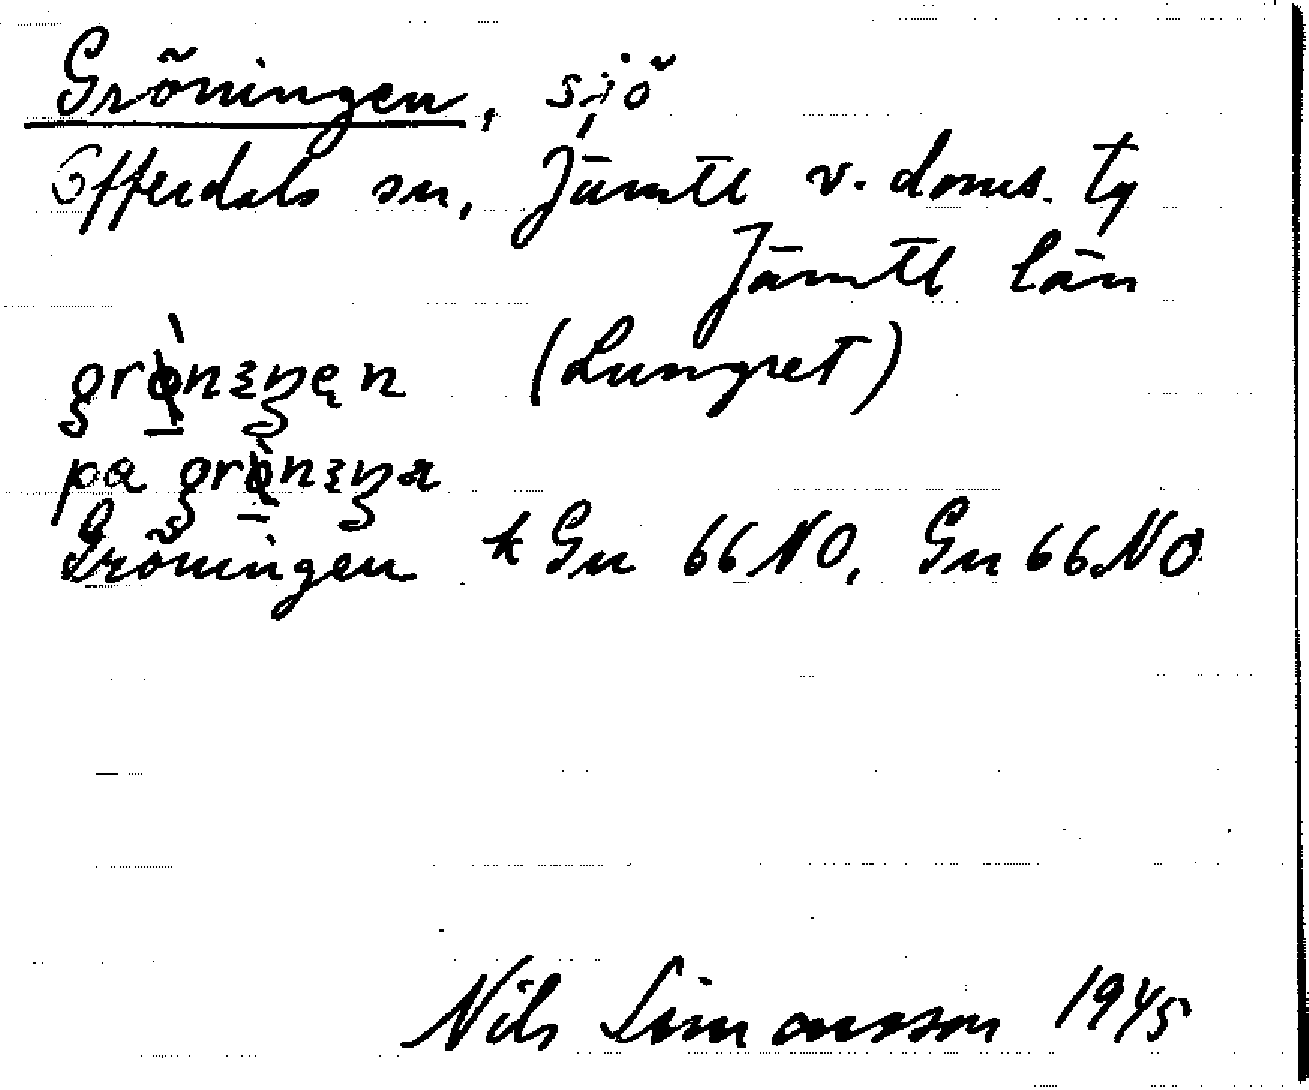 Gröningen, sjö
Offerdals sn, Jämtl v. doms. tg
Jämtl län
(Lungret)
pa
Gröningen k Gn 66 NO, Gn 66 NO
Nils Simonsson 1945